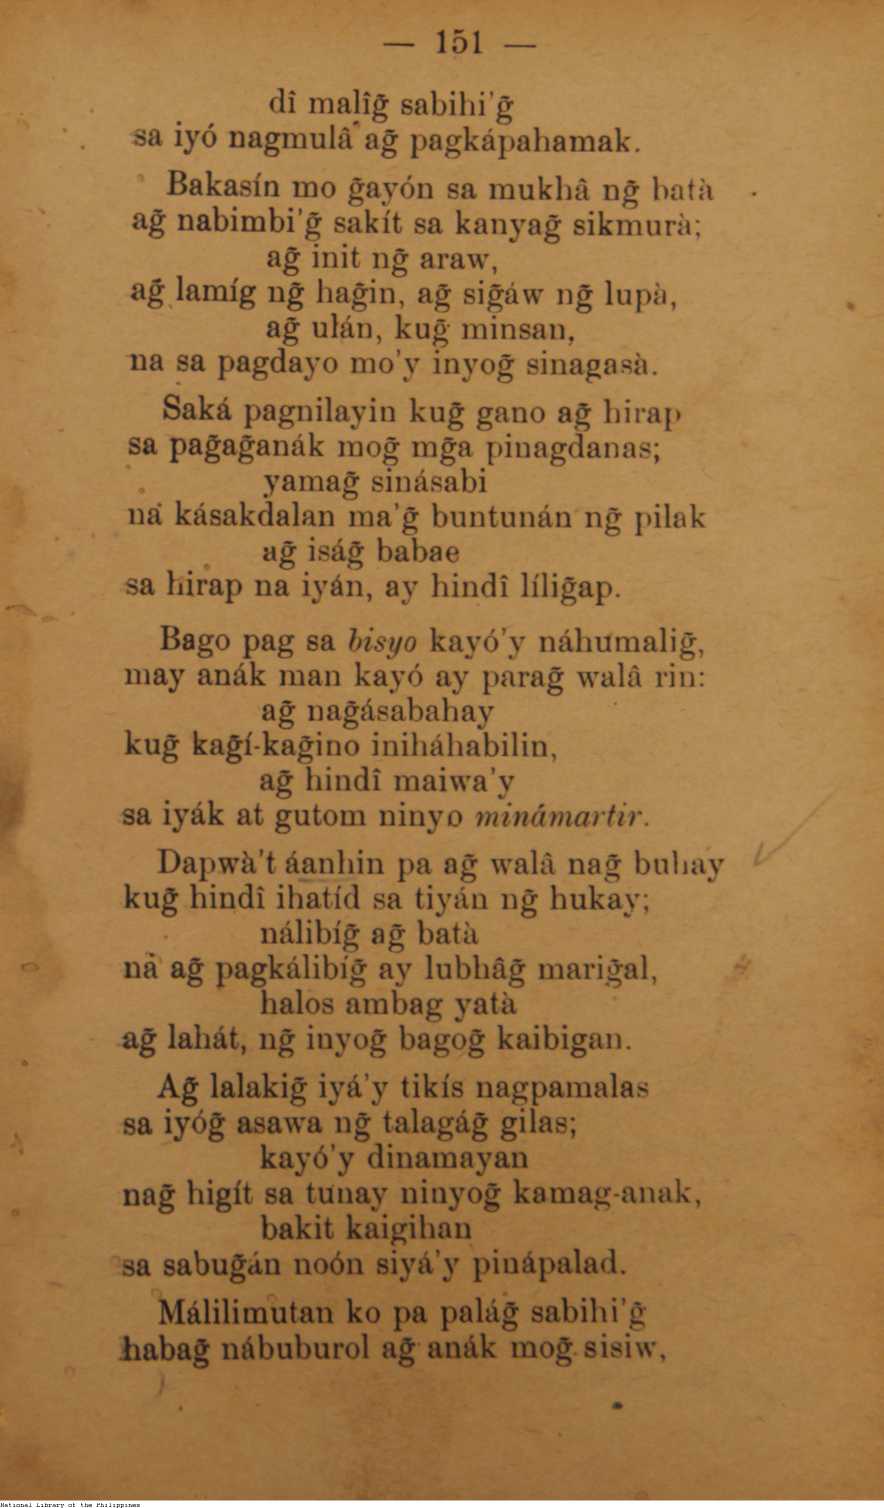 — 151 —
dî malîg̃ sabihi'g̃
sa iyó nagmulâ ag̃ pagkápahamak.
Bakasín mo g̃ayón sa mukhâ ng̃ batà
ag̃ nabimbi'g̃ sakít sa kanyag̃ sikmurà;
ag̃ init ng̃ araw,
ag̃ lamíg ng̃ hag̃in, ag̃ sig̃áw ng̃ lupà,
ag̃ ulán, kug̃ minsan,
na sa pagdayo mo'y inyog̃ sinagasà.
Saká pagnilayin kug̃ gano ag̃ hirap
sa pag̃ag̃anák mog̃ mg̃a pinagdanas;
yamag̃ sinásabi
na kásakdalan ma'g̃ buntunán ng̃ pilak
ag̃ iság̃ babae
sa hirap na iyán, ay hindî lílig̃ap.
Bago pag sa bisyo kayó'y náhumalig̃,
may anák man kayó ay parag̃ walâ rin:
ag̃ nag̃ásabahay
kug̃ kag̃í-kag̃ino iniháhabilin,
ag̃ hindî maiwa'y
sa iyák at gutom ninyo minámartir.
Dapwà't áanhin pa ag̃ walâ nag̃ buhay
kug̃ hindî ihatíd sa tiyán ng̃ hukay;
nálibíg̃ ag̃ batà
na ag̃ pagkálibíg̃ ay lubhâg̃ marig̃al,
halos ambag yatà
ag̃ lahát, ng̃ inyog̃ bagog̃ kaibigan.
Ag̃ lalakig̃ iyá'y tikís nagpamalas
sa iyóg̃ asawa ng̃ talagág̃ gilas;
kayó'y dinamayan
nag̃ higít sa tunay ninyog̃ kamag-anak,
bakit kaigihan
sa sabug̃án noón siyá'y pinápalad.
Málilimutan ko pa palág̃ sabihi'g̃
habag̃ nábuburol ag̃ anák mog̃ sisiw,
National Library of the Philippines